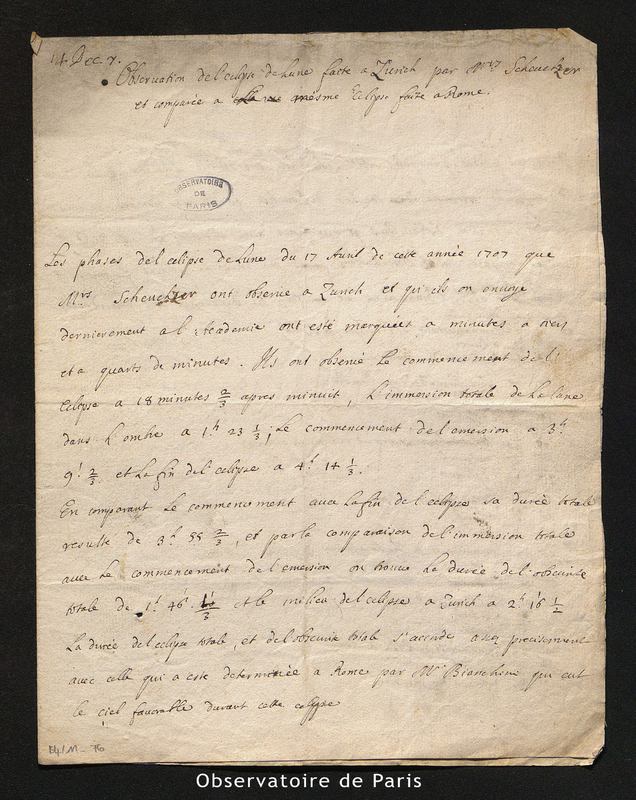 14. Dec. 7.
Observation de l'eclipse de Lune faite a Zurich par Mrs Scheuchzer
et comparée a mesme Eclipse faite a Rome.
OBSERVATOIRE
DE
PARIS
Les phases de l'eclipse de Lune du 17 Avril de cette année 1707 que
Mrs Scheuchzer ont observé a Zurich et qu'ils on envoye
dernierement a l'Academie ont esté marquées a minutes a
et a quarts de minutes. Ils ont observé Le commencement de l'
Eclipse a 18 minutes 2/3 apres minuit, L'immersion totale de La lune
dans L'ombre a 1.h 23 1/3; Le commencement de l'emersion a 3.h
9' 2/3 et La fin de l'eclipse a 4.h 14 1/3.
En comparant Le commencement avec La fin de l'eclipse sa durée totale
resulte de 3.h 55 2/3, et par la comparaison de l'immersion totale
avec Le commencement de l'emersion on trouve La durée de l'obscurité
totale de 1.h 46' 1/3 et le milieu de l'eclipse a Zurich a 2.h 16 1/2
La durée de l'eclipse totale, et de l'obscurité totale s'accorde assez precisement
avec celle qui a esté determinée a Rome par Mr Bianchini qui eut
le ciel favorable durant cette eclipse
Observatoire de Paris